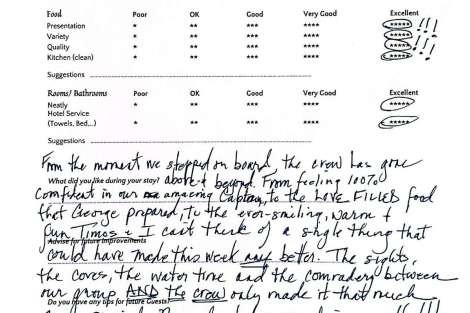 Food Poor OK Good Very Good Excellent
Presentation * ** *** **** ***** !!!
Variety * ** *** **** ***** !!!
Quality * ** *** **** ***** !!!
Kitchen (clean) * ** *** **** *****
Suggestions
Rooms/ Bathrooms Poor OK Good Very Good Excellent
Neatly * ** *** **** *****
Hotel Service
(Towels, Bed...) * ** *** **** *****
Suggestions
From the moment we stepped on board the crew has gone
What did you like during your stay? above & beyond. From feeling 100%
confident in our amazing Captain, to the LOVE FILLED food
that George prepared, to the ever-smiling, warm &
fun Timos & I can't think of a single thing that
Advise for future improvements
could have made this week any better. The sights,
the coves, the water time and the comradery between
our group AND the crew only made it that much
Do you have any tips for future Guests?